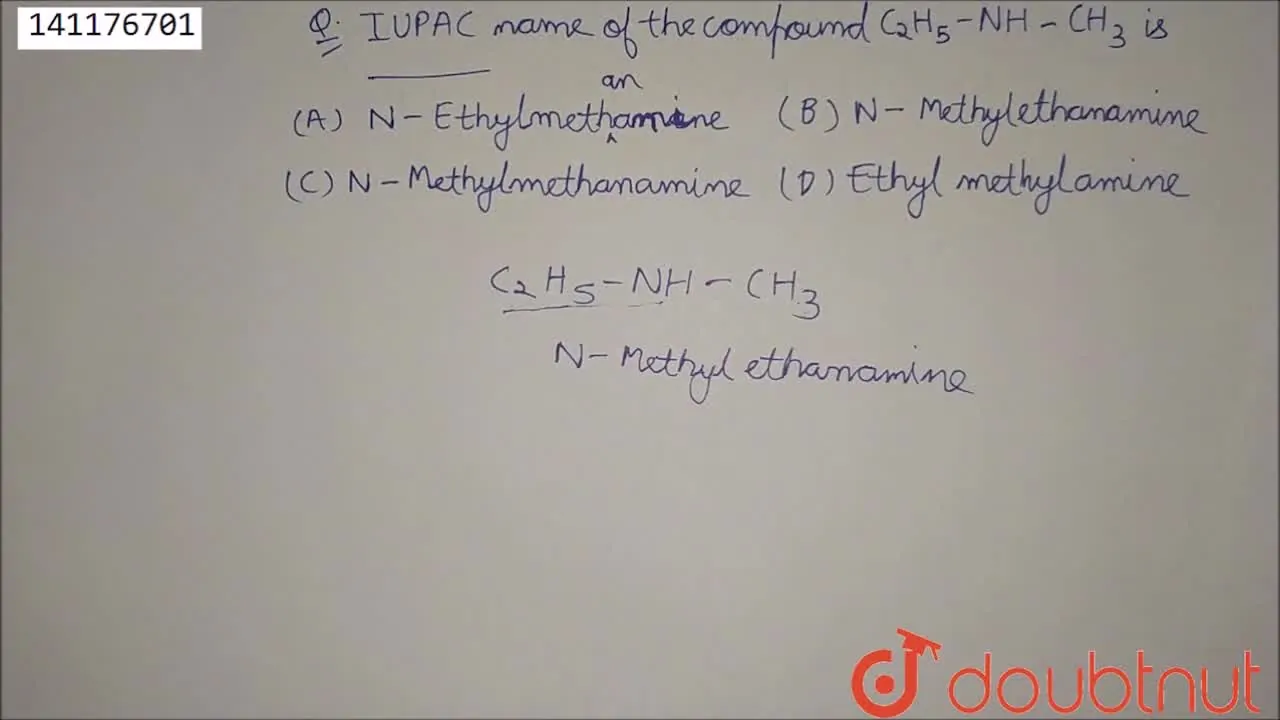 141176701
Q. IUPAC name of the compound C2H5-NH-CH3 is
an
(A) N-Ethylmethamine (B) N-Methylethanamine
(C) N-Methylmethanamine (D) Ethyl methylamine
C2H5-NH-CH3
N-Methyl ethanamine
doubtnut